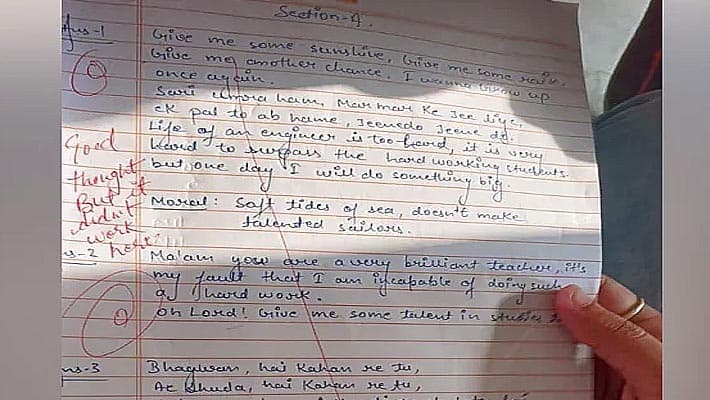 Section-A.
Ans-1
Give me some sunshine, Give me some rain,
Give me another chance, I wanna Grow up
once again.
Sari umra ham, Mar mar Ke Jee liye,
ek pal to ab hame, Jeenedo Jeene do.
Life of an engineer is too hard, it is very
hard to surpass the hard working students.
but one day I will do something big.
Moral: Soft tides of sea, doesn't make
talented sailors.
0
Good
thought
But it
didn't
work
here
s-2
Ma'am you are a very brilliant teacher, it's
my fault that I am incapable of doing such
a hard work.
oh Lord! Give me some talent in studies
0
ns-3
Bhagwan, hai Kahan re tu,
Ae Khuda, hai Kahan re tu,